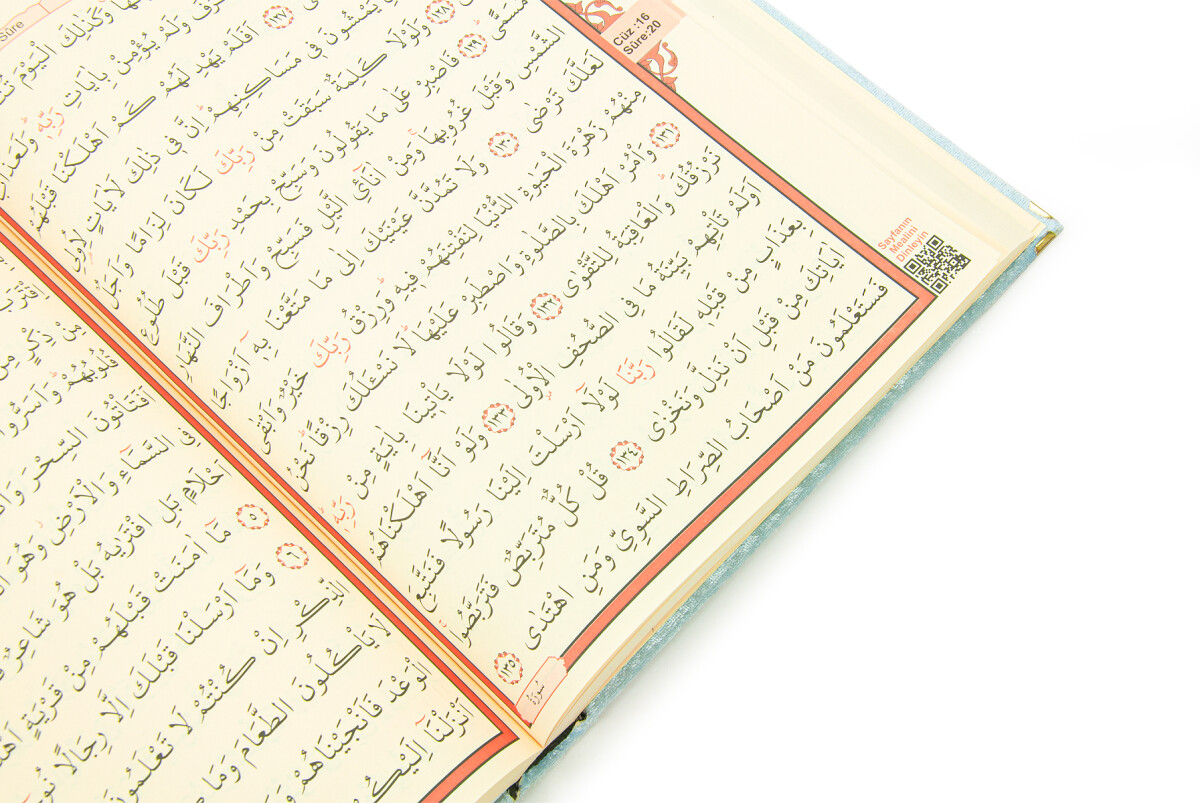 Sûre
Cüz :16
Sûre:20
وَكَذٰلِكَ الْيَوْمَ
وَلَمْ يُؤْمِنْ بِاٰيَاتِ رَبِّه۪ وَلَعَذَابُ
﴿١٢٧﴾ اَفَلَمْ يَهْدِ لَهُمْ كَمْ اَهْلَكْنَا قَبْلَهُمْ
يَمْشُونَ ف۪ي مَسَاكِنِهِمْ اِنَّ ف۪ي ذٰلِكَ لَاٰيَاتٍ لِاُولِي
﴿١٢٨﴾ وَلَوْلَا كَلِمَةٌ سَبَقَتْ مِنْ رَبِّكَ لَكَانَ لِزَامًا وَاَجَلٌ
مُسَمًّى ﴿١٢٩﴾ فَاصْبِرْ عَلٰى مَا يَقُولُونَ وَسَبِّحْ بِحَمْدِ رَبِّكَ قَبْلَ طُلُوعِ
الشَّمْسِ وَقَبْلَ غُرُوبِهَا وَمِنْ اٰنَٓائِ الَّيْلِ فَسَبِّحْ وَاَطْرَافَ النَّهَارِ
لَعَلَّكَ تَرْضٰى ﴿١٣٠﴾ وَلَا تَمُدَّنَّ عَيْنَيْكَ اِلٰى مَا مَتَّعْنَا بِه۪ٓ اَزْوَاجًا
مِنْهُمْ زَهْرَةَ الْحَيٰوةِ الدُّنْيَا لِنَفْتِنَهُمْ ف۪يهِ وَرِزْقُ رَبِّكَ خَيْرٌ وَاَبْقٰى
﴿١٣١﴾ وَأْمُرْ اَهْلَكَ بِالصَّلٰوةِ وَاصْطَبِرْ عَلَيْهَا لَا نَسْـَٔلُكَ رِزْقًا نَحْنُ
نَرْزُقُكَ وَالْعَاقِبَةُ لِلتَّقْوٰى ﴿١٣٢﴾ وَقَالُوا لَوْلَا يَأْت۪ينَا بِاٰيَةٍ مِنْ رَبِّه۪
اَوَلَمْ تَأْتِهِمْ بَيِّنَةُ مَا فِي الصُّحُفِ الْاُو۫لٰى ﴿١٣٣﴾ وَلَوْ اَنَّٓا اَهْلَكْنَاهُمْ
بِعَذَابٍ مِنْ قَبْلِه۪ لَقَالُوا رَبَّنَا لَوْلَٓا اَرْسَلْتَ اِلَيْنَا رَسُولًا فَنَتَّبِعَ
اٰيَاتِكَ مِنْ قَبْلِ اَنْ نَذِلَّ وَنَخْزٰى ﴿١٣٤﴾ قُلْ كُلٌّ مُتَرَبِّصٌ فَتَرَبَّصُوا
فَسَتَعْلَمُونَ مَنْ اَصْحَابُ الصِّرَاطِ السَّوِيِّ وَمَنِ اهْتَدٰى ﴿١٣٥﴾
سُورَةُ
Sayfanın
Mealini
Dinleyin
ذِكْرٍ مِنْ
قُلُوبُهُمْ وَاَسَرُّوا
اَفَتَأْتُونَ السِّحْرَ
فِي السَّمَٓاءِ وَالْاَرْضِ وَهُوَ
اَحْلَامٍ بَلِ افْتَرٰيهُ بَلْ هُوَ شَاعِرٌ
﴿٥﴾ مَٓا اٰمَنَتْ قَبْلَهُمْ مِنْ قَرْيَةٍ
﴿٦﴾ وَمَٓا اَرْسَلْنَا قَبْلَكَ اِلَّا رِجَالًا
الذِّكْرِ اِنْ كُنْتُمْ لَا تَعْلَمُونَ
لَا يَأْكُلُونَ الطَّعَامَ وَمَا
الْوَعْدَ فَاَنْجَيْنَاهُمْ
اَنْزَلْنَٓا اِلَيْكُمْ